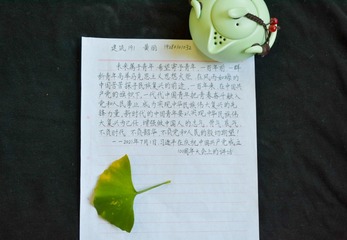 建筑191 黄丽
未来属于青年,希望寄予青年。一百年前,一群
新青年高举马克思主义思想火炬,在风雨如晦的
中国苦苦探寻民族复兴的前途。一百年来,在中国共
产党的旗帜下,一代代中国青年把青春奋斗融入
党和人民事业,成为实现中华民族伟大复兴的先
锋力量。新时代的中国青年要以实现中华民族伟
大复兴为己任,增强做中国人的志气、骨气、底气,
不负时代,不负韶华,不负党和人民的殷切期望!
——2021年7月1日,习近平在庆祝中国共产党成立
100周年大会上的讲话